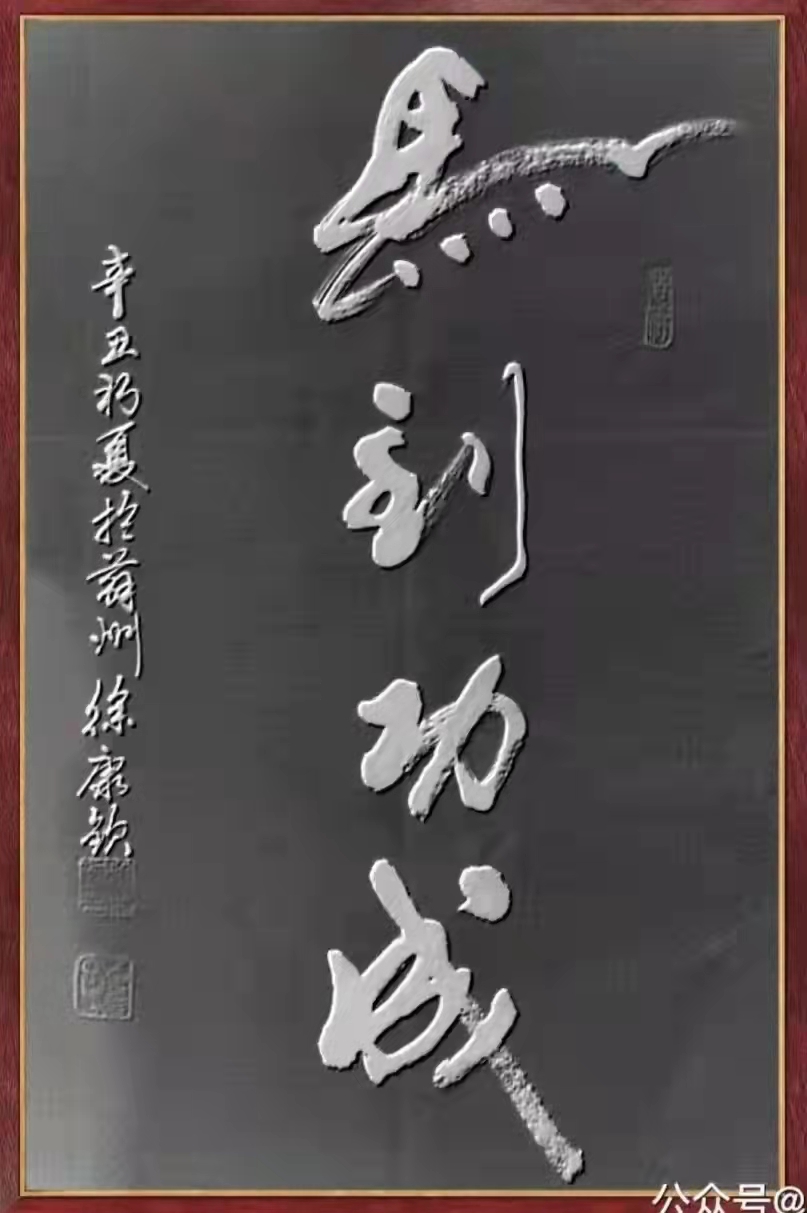 馬到功成
辛丑初夏於蘇州徐康欽
公众号@